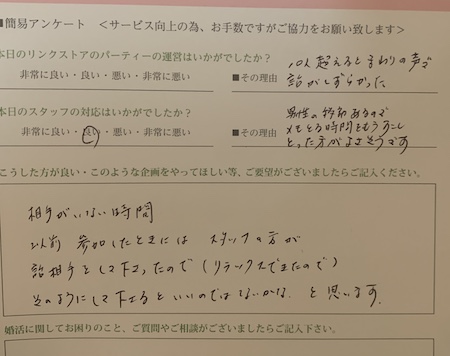 ■簡易アンケート <サービス向上の為、お手数ですがご協力をお願い致します>
本日のリンクストアのパーティーの運営はいかがでしたか?
非常に良い・良い・悪い・非常に悪い
■その理由
10人超えるとまわりの声で
話がしずらかった
本日のスタッフの対応はいかがでしたか?
非常に良い・良い・悪い・非常に悪い
■その理由
男性の あるので
メモとる時間をもう少し
とった方がよさそうです
こうした方が良い・このような企画をやってほしい等、ご要望がございましたらご記入ください。
相手がいない時間
以前 参加したときには スタッフの方が
話相手として下さったので(リラックスできたので)
そのようにして下さるといいのではないかな と思います。
婚活に関してお困りのこと、ご質問やご相談がございましたらご記入下さい。